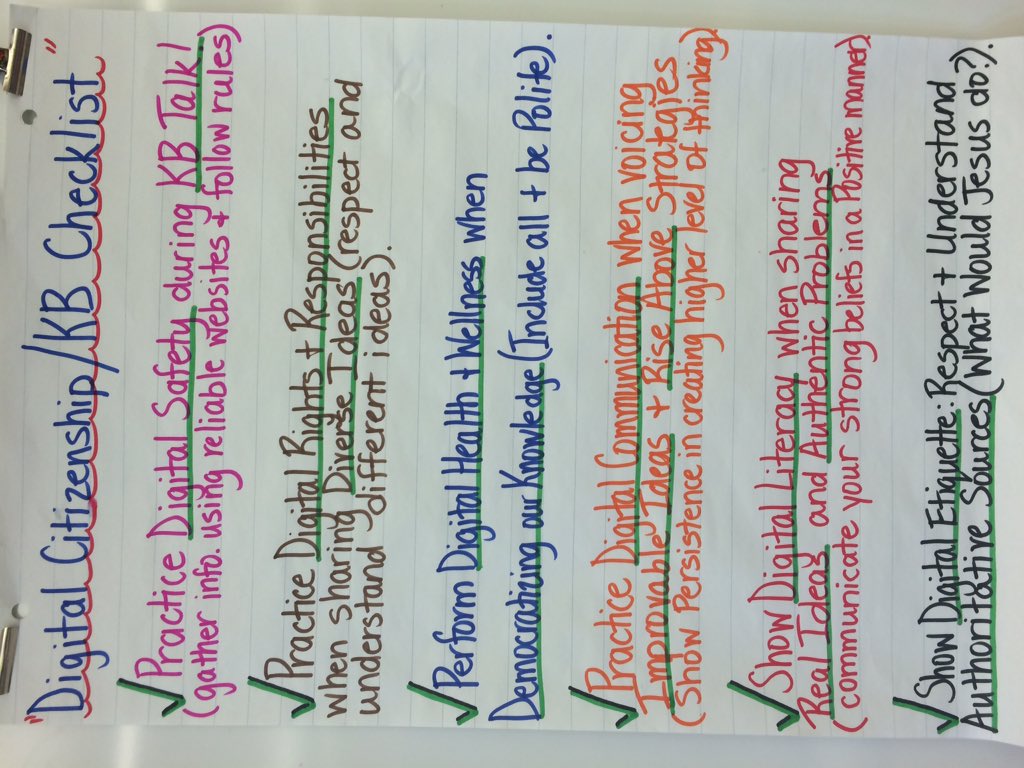 "Digital Citizenship/KB Checklist"
✓ Practice Digital Safety during KB Talk!
(gather info. using reliable websites + follow rules)
✓ Practice Digital Rights + Responsibilities
when sharing Diverse Ideas (respect and
understand different ideas).
✓ Perform Digital Health + Wellness when
Democratizing our Knowledge (Include all + be Polite).
✓ Practice Digital Communication when voicing
Improvable Ideas + Rise Above Strategies
(Show Persistence in creating higher level of thinking)
✓ Show Digital Literacy when sharing
Real Ideas and Authentic Problems
(communicate your strong beliefs in a Positive manner)
✓ Show Digital Etiquette: Respect + Understand
Authoritative Sources (What Would Jesus do?).